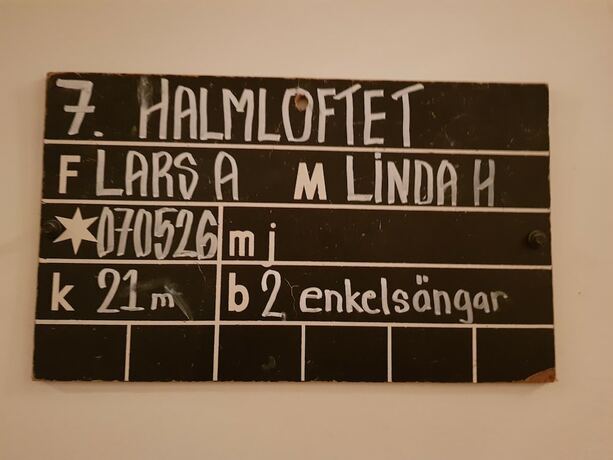 7. HALMLOFTET
F LARS A M LINDA H
070526 mj
k 21 m b 2 enkelsängar